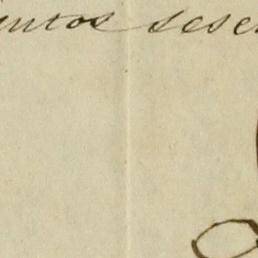 entos sesen